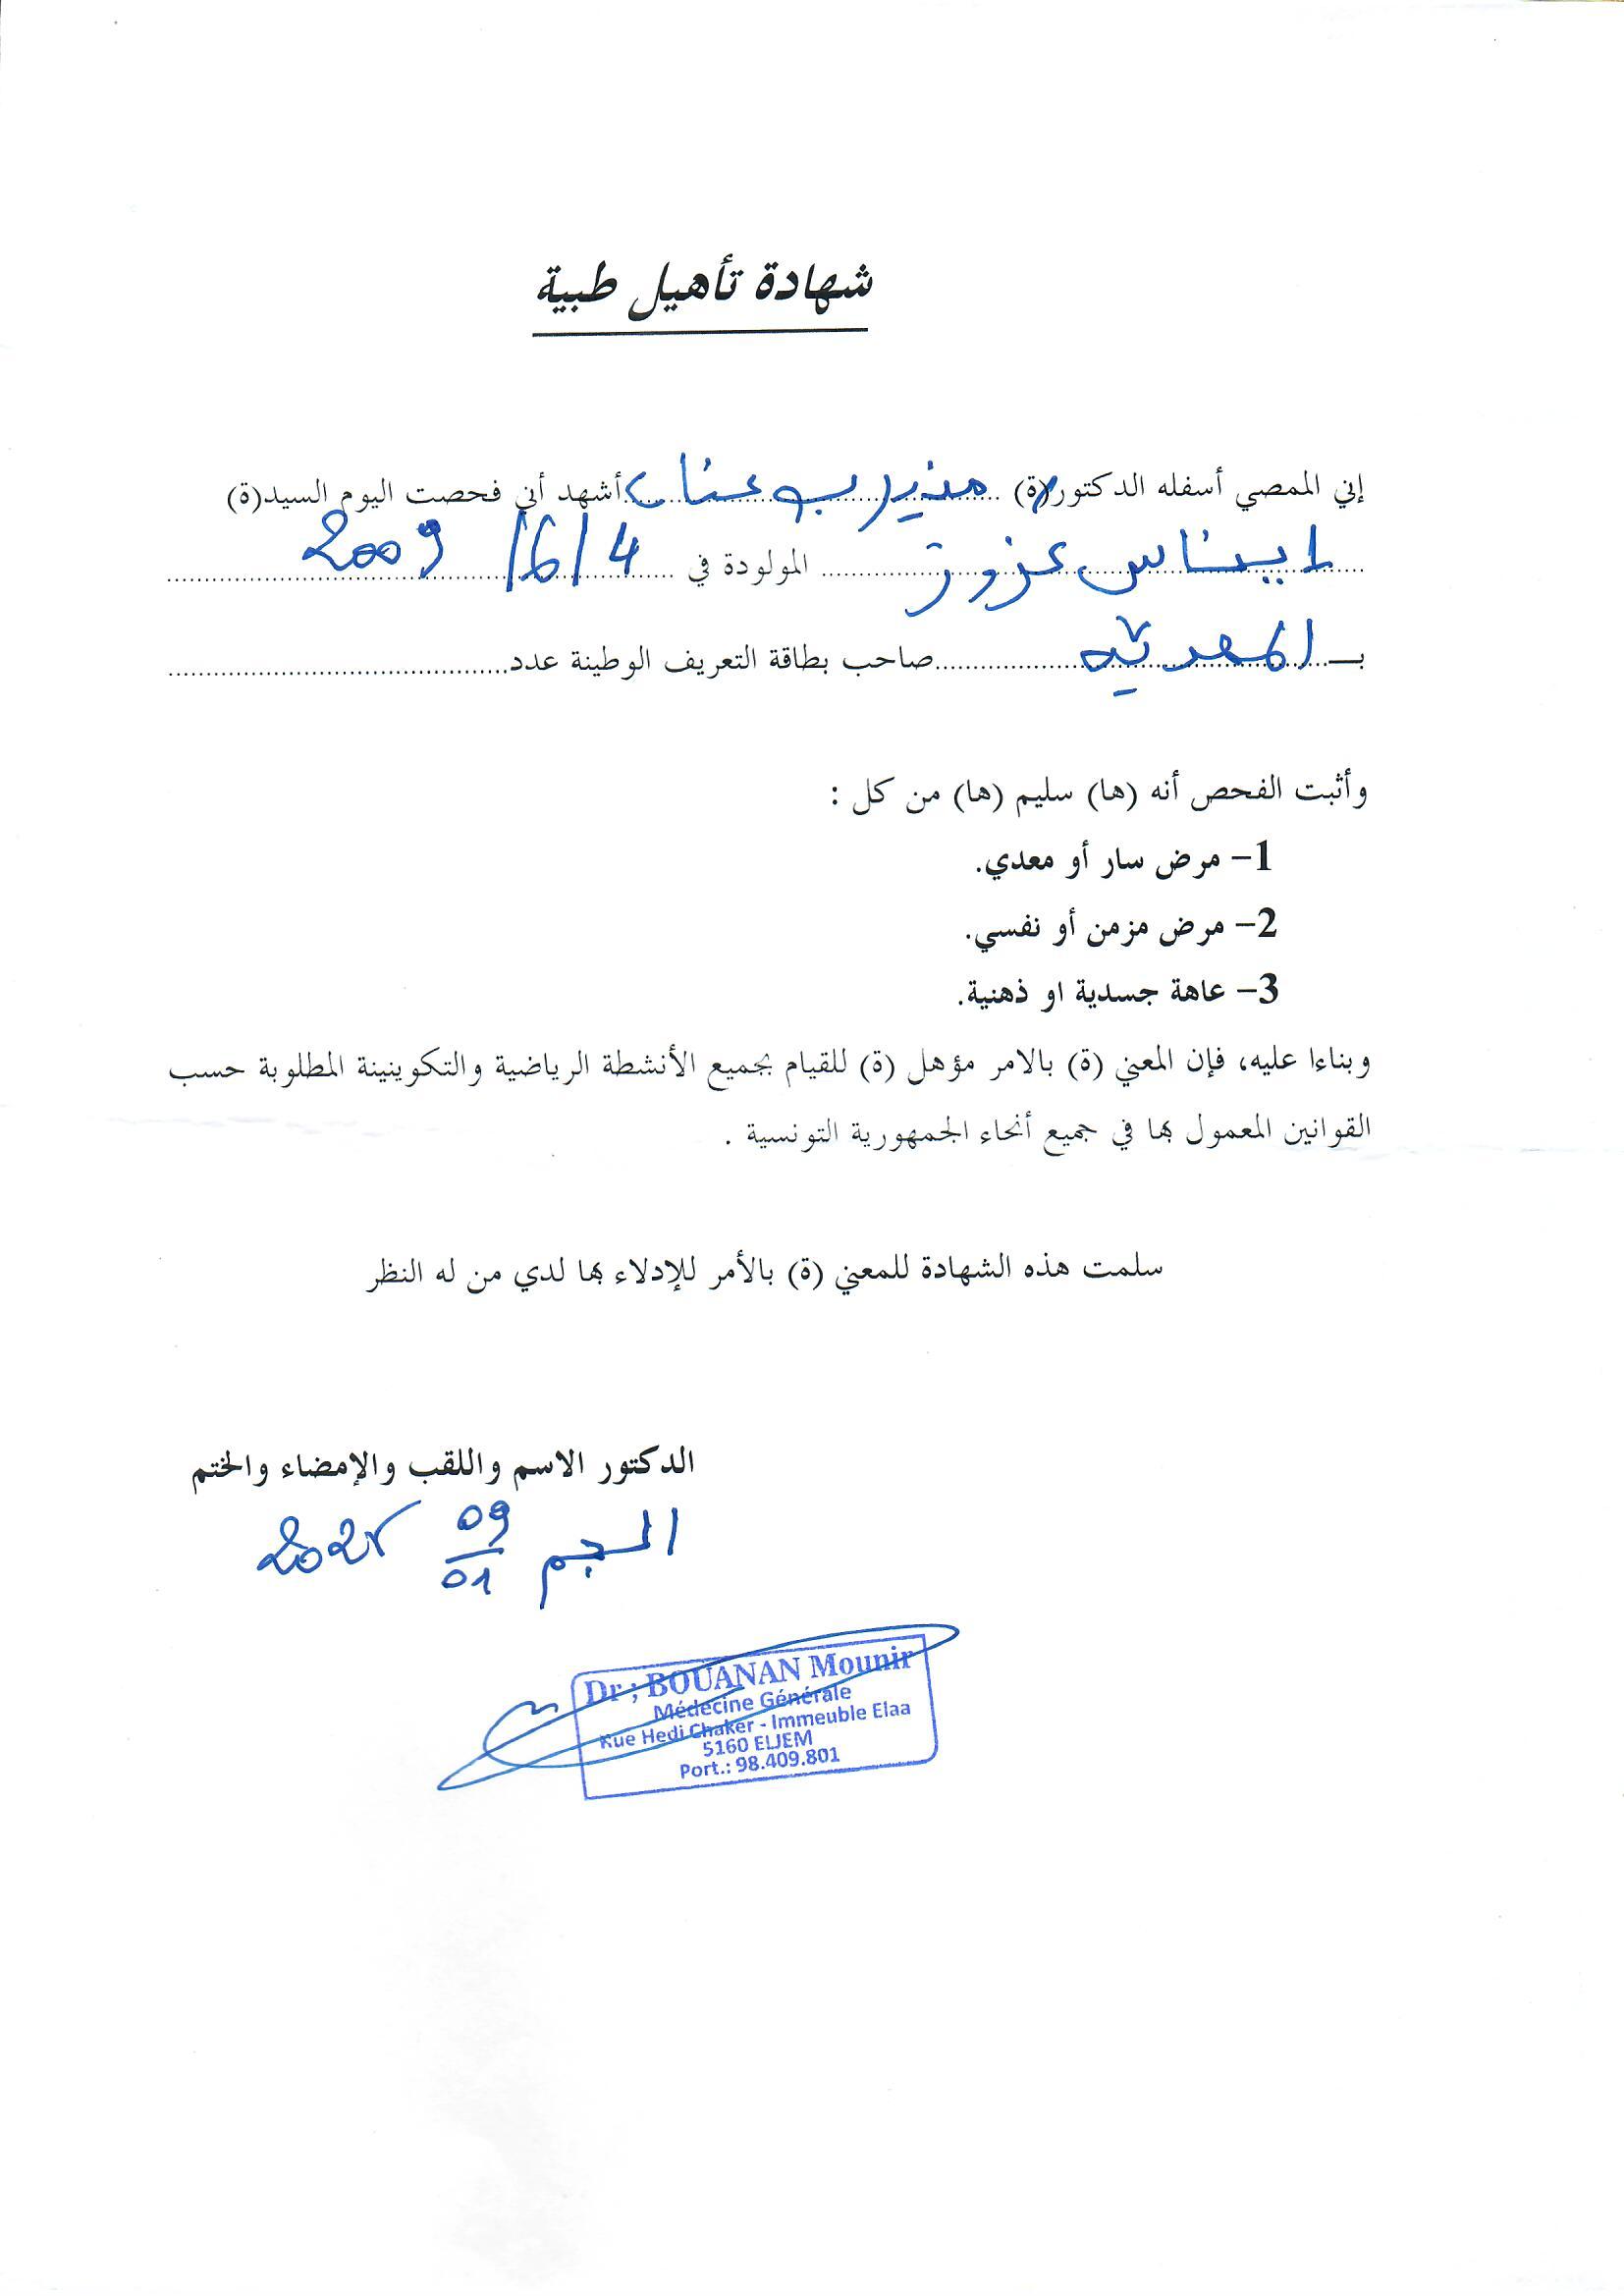 شهادة تأهيل طبية
إني الممصي أسفله الدكتور(ة) منير بوعنان أشهد أني فحصت اليوم السيد(ة)
ايناس عزوز المولودة في 4/6/2009
بـ المهدية صاحب بطاقة التعريف الوطينة عدد
وأثبت الفحص أنه (ها) سليم (ها) من كل :
1- مرض سار أو معدي.
2- مرض مزمن أو نفسي.
3- عاهة جسدية او ذهنية.
وبناءا عليه، فإن المعني (ة) بالامر مؤهل (ة) للقيام بجميع الأنشطة الرياضية والتكوينينة المطلوبة حسب
القوانين المعمول بها في جميع أنحاء الجمهورية التونسية .
سلمت هذه الشهادة للمعني (ة) بالأمر للإدلاء بها لدي من له النظر
الدكتور الاسم واللقب والإمضاء والختم
الجم 09/01
Dr ; BOUANAN Mounir
Médecine Générale
Rue Hedi Chaker - Immeuble Elaa
5160 ELJEM
Port.: 98.409.801